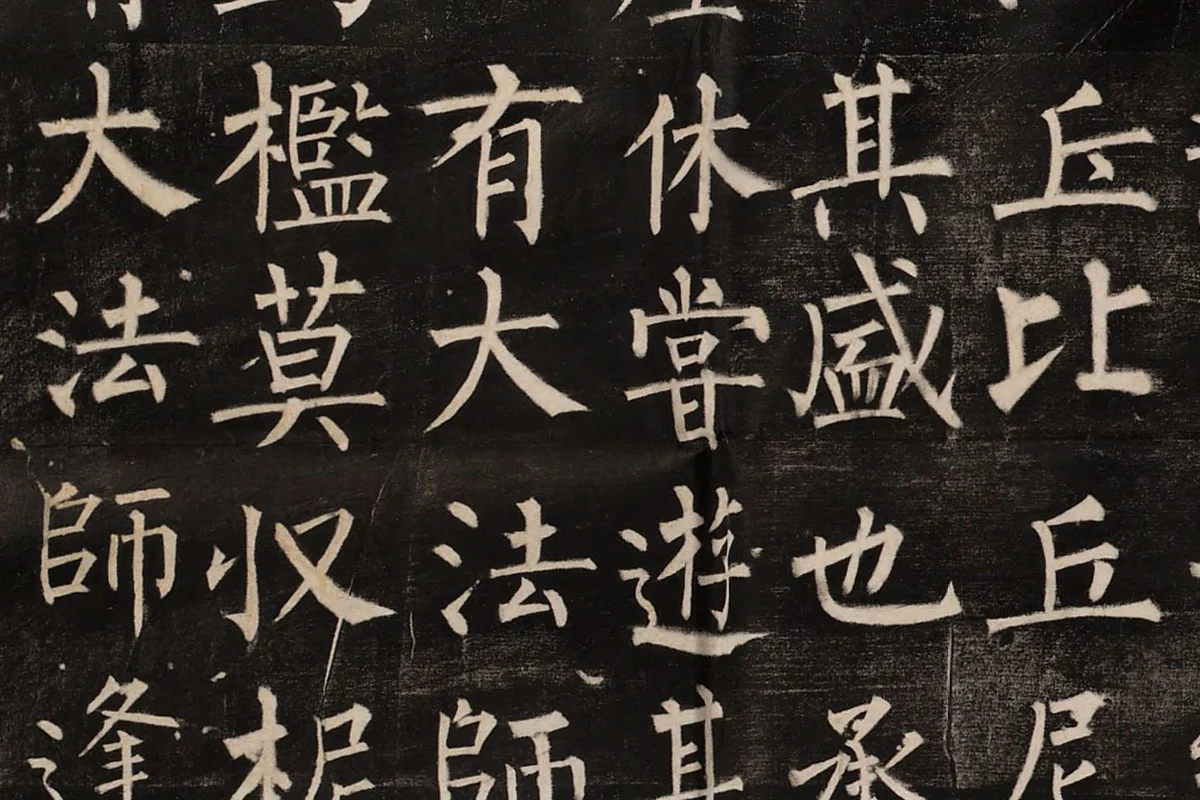 丘比丘尼
其盛也承
休嘗遊其
有大法師
檻莫収柅
大法師逢